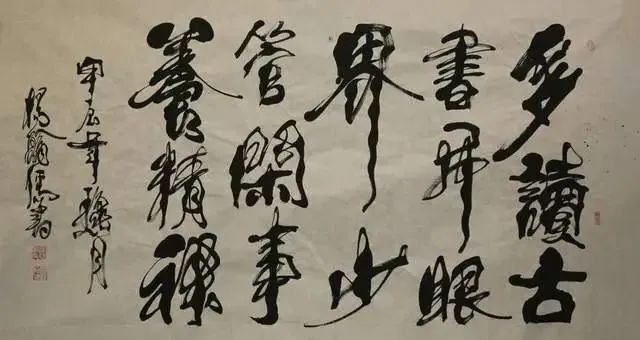 多讀古
書開眼
界少
管閑事
養精神
甲辰年月
楊書